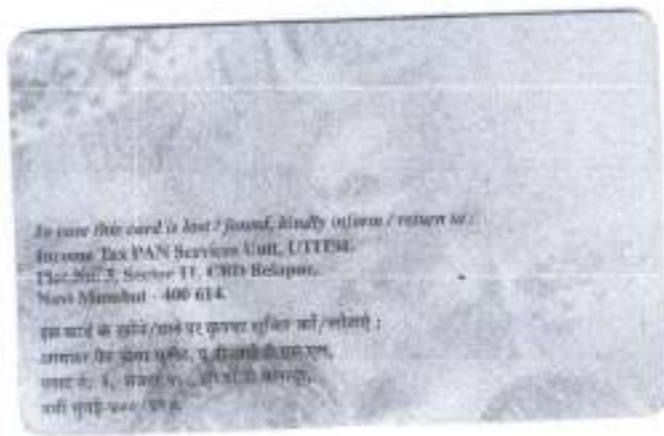 In case this card is lost / found, kindly inform / return to :
Income Tax PAN Services Unit, UTITSL
Plot No. 3, Sector 11, CBD Belapur,
Navi Mumbai - 400 614.
इस कार्ड के खोने/पाने पर कृपया सूचित करें/लौटाएं :
आयकर पैन सेवा यूनीट,
प्लाट नं. ३, सेक्टर ११, सी.बी.डी. बेलापूर,
नवी मुंबई-४०० ६१४.